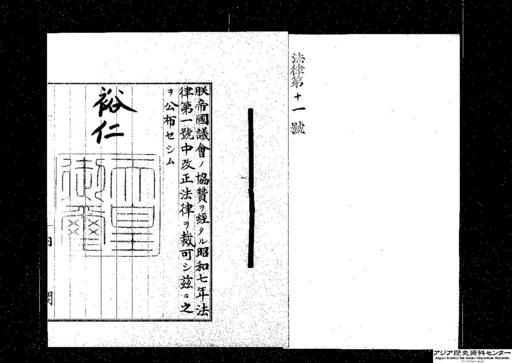 法律第十一號
朕帝國議會ノ協贊ヲ經タル昭和七年法
律第一號中改正法律ヲ裁可シ茲ニ之
ヲ公布セシム
裕仁
天皇
御璽
アジア歴史資料センター
Japan Center for Asian Historical Records